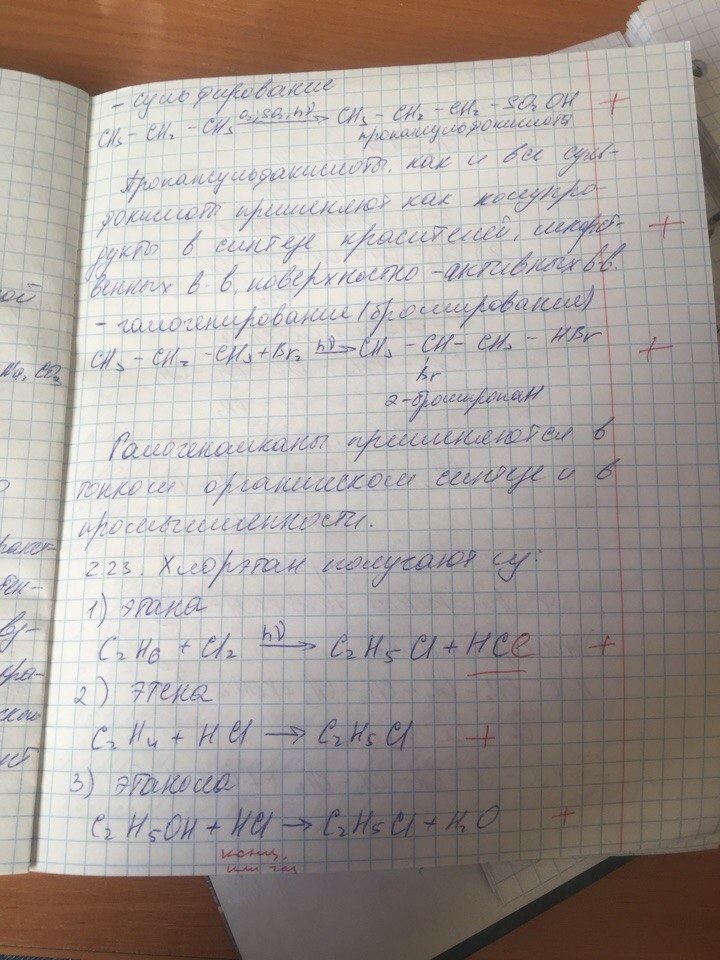 - сульфирование
CH₃ - CH₂ - CH₃ O₂, SO₂, hν → CH₃ - CH₂ - CH₂ - SO₂OH +
пропансульфокислота
Пропансульфокислоты, как и все суль-
фокислоты применяют как полупро-
дукты в синтезе красителей, лекарст- +
венных в-в, поверхностно-активных в-в.
- галогенирование (бромирование)
CH₃ - CH₂ - CH₃ + Br₂ hν → CH₃ - CH - CH₃ - HBr +
Br
2-бромпропан
Галогеналканы применяются в
тонком органическом синтезе и в
промышленности.
2.23. Хлорэтан получают из:
1) этана
C₂H₆ + Cl₂ hν → C₂H₅Cl + HCl +
2) этена
C₂H₄ + HCl → C₂H₅Cl +
3) этанола
C₂H₅OH + HCl → C₂H₅Cl + H₂O +
конц.
или газ